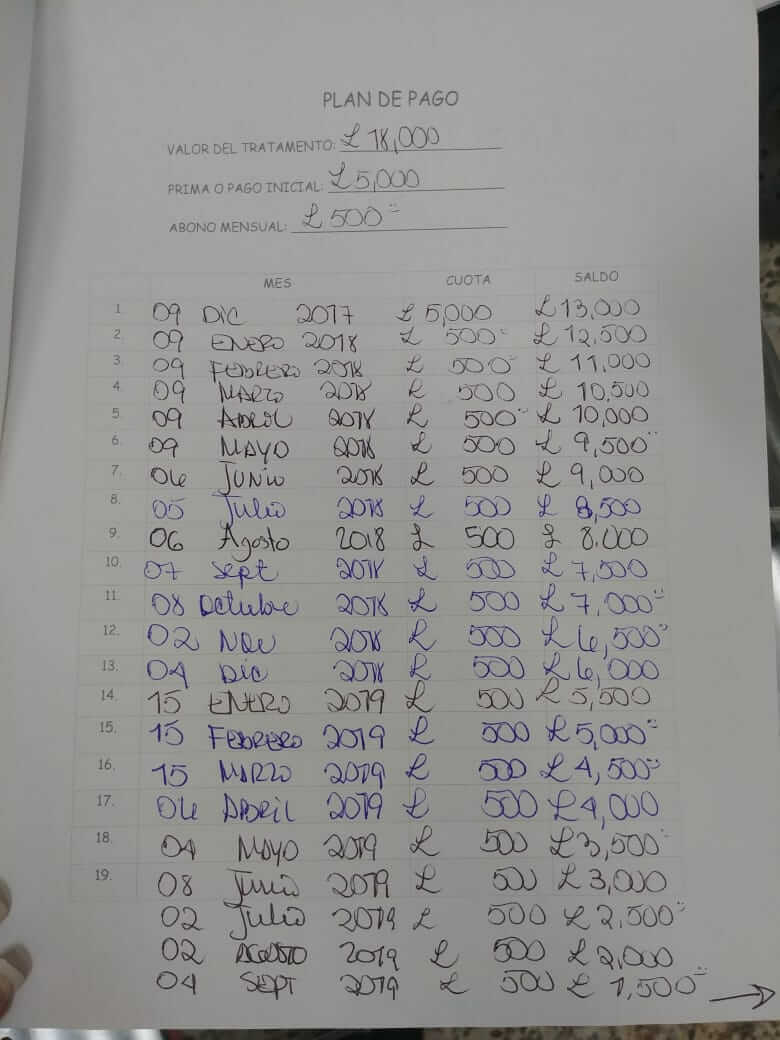 PLAN DE PAGO
VALOR DEL TRATAMENTO: £ 18,000
PRIMA O PAGO INICIAL: £ 5,000
ABONO MENSUAL: £ 500
MES CUOTA SALDO
1. 09 DIC 2017 £ 5,000 £ 13,000
2. 09 ENERO 2018 £ 500 £ 12,500
3. 09 FEBRERO 2018 £ 500 £ 11,000
4. 09 MARZO 2018 £ 500 £ 10,500
5. 09 ABRIL 2018 £ 500 £ 10,000
6. 09 MAYO 2018 £ 500 £ 9,500
7. 06 JUNIO 2018 £ 500 £ 9,000
8. 05 Julio 2018 £ 500 £ 8,500
9. 06 Agosto 2018 £ 500 £ 8.000
10. 07 Sept 2018 £ 500 £ 7,500
11. 08 Octubre 2018 £ 500 £ 7,000
12. 02 Nov 2018 £ 500 £ 6,500
13. 04 Dic 2018 £ 500 £ 6,000
14. 15 ENERO 2019 £ 500 £ 5,500
15. 15 FEBRERO 2019 £ 500 £ 5,000
16. 15 MARZO 2019 £ 500 £ 4,500
17. 06 ABRIL 2019 £ 500 £ 4,000
18. 04 MAYO 2019 £ 500 £ 3,500
19. 08 Junio 2019 £ 500 £ 3,000
02 Julio 2019 £ 500 £ 2,500
02 AGOSTO 2019 £ 500 £ 2,000
04 SEPT 2019 £ 500 £ 1,500 →